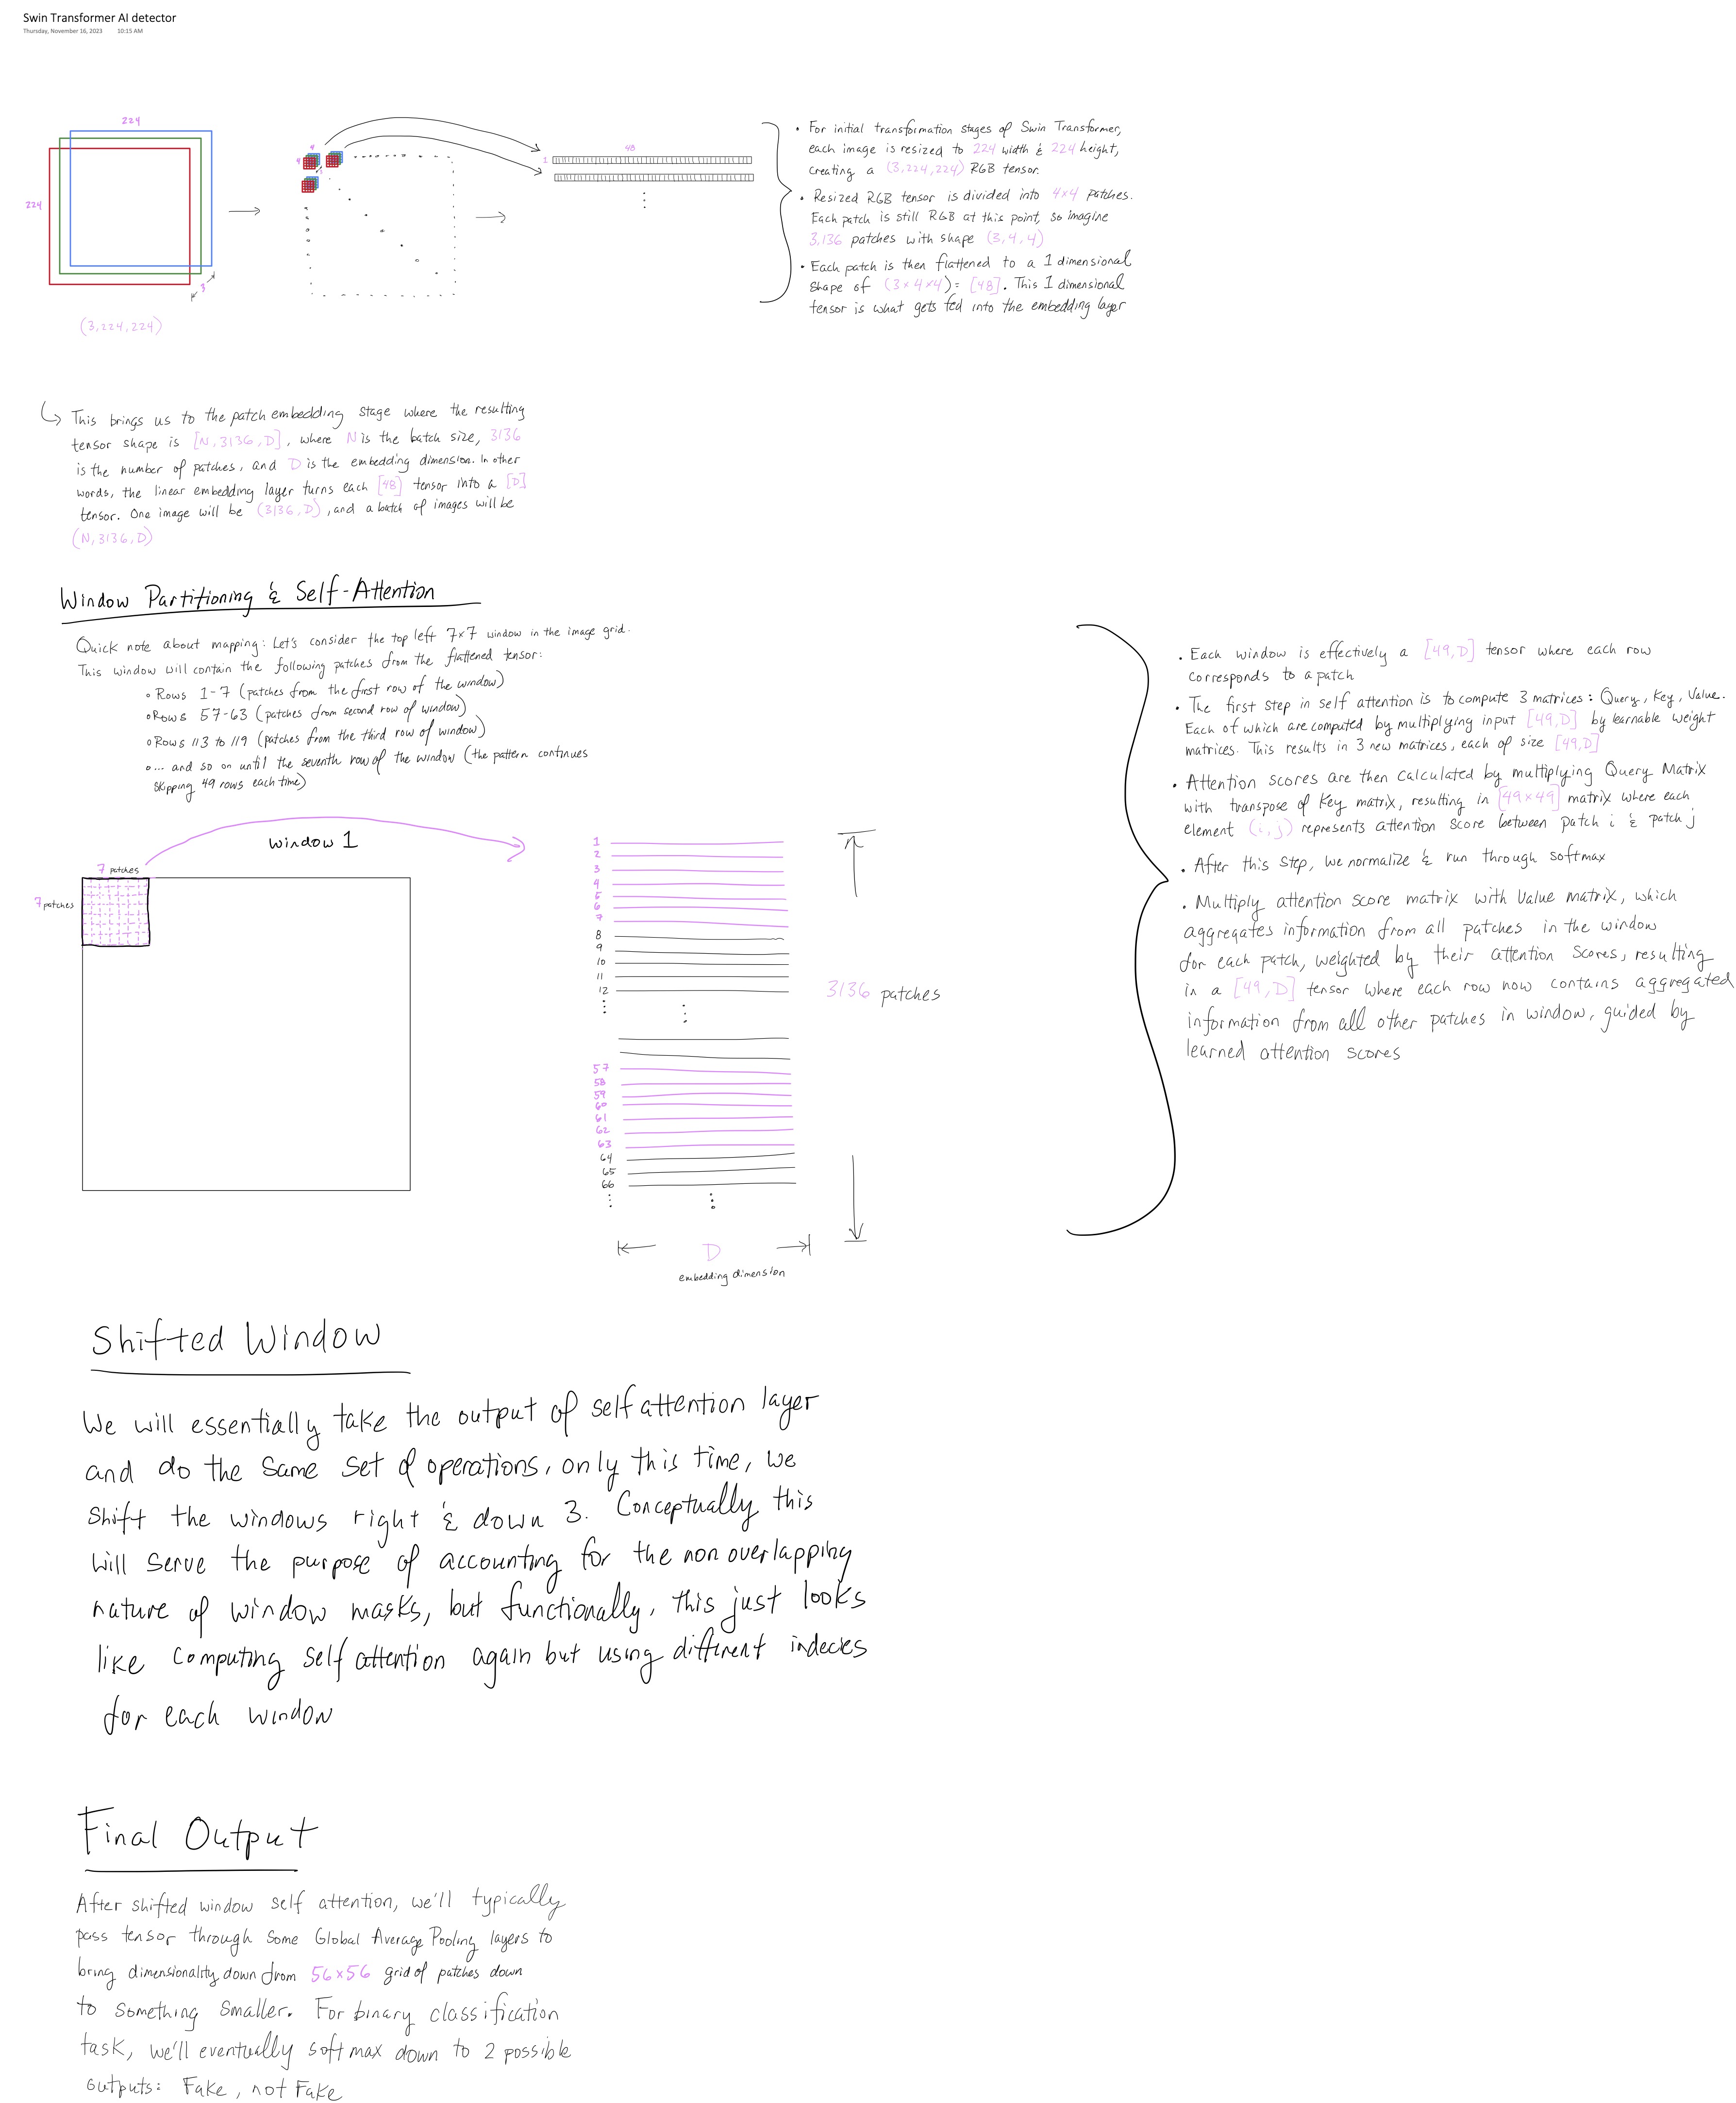 Swin Transformer AI detector
Thursday, November 16, 2023 10:15 AM
224
224
3
(3,224,224)
4
4
3
48
1
• For initial transformation stages of Swin Transformer,
each image is resized to 224 width & 224 height,
creating a (3,224,224) RGB tensor.
• Resized RGB tensor is divided into 4×4 patches.
Each patch is still RGB at this point, so imagine
3,136 patches with shape (3,4,4)
• Each patch is then flattened to a 1 dimensional
shape of (3×4×4)= [48]. This 1 dimensional
tensor is what gets fed into the embedding layer
This brings us to the patch embedding stage where the resulting
tensor shape is [N,3136,D], where N is the batch size, 3136
is the number of patches, and D is the embedding dimension. In other
words, the linear embedding layer turns each [48] tensor into a [D]
tensor. One image will be (3136,D), and a batch of images will be
(N,3136,D)
Window Partitioning & Self-Attention
Quick note about mapping: Let's consider the top left 7×7 window in the image grid.
This window will contain the following patches from the flattened tensor:
◦ Rows 1-7 (patches from the first row of the window)
◦ Rows 57-63 (patches from second row of window)
◦ Rows 113 to 119 (patches from the third row of window)
◦ ... and so on until the seventh row of the window (the pattern continues
skipping 49 rows each time)
window 1
7 patches
7 patches
1
2
3
4
5
6
7
8
9
10
11
12
57
58
59
60
61
62
63
64
65
66
3136 patches
D
embedding dimension
• Each window is effectively a [49,D] tensor where each row
corresponds to a patch
• The first step in self attention is to compute 3 matrices: Query, Key, Value.
Each of which are computed by multiplying input [49,D] by learnable weight
matrices. This results in 3 new matrices, each of size [49,D]
• Attention scores are then calculated by multiplying Query Matrix
with transpose of Key matrix, resulting in [49×49] matrix where each
element (i,j) represents attention score between patch i & patch j
• After this step, we normalize & run through softmax
• Multiply attention score matrix with Value matrix, which
aggregates information from all patches in the window
for each patch, weighted by their attention scores, resulting
in a [49,D] tensor where each row now contains aggregated
information from all other patches in window, guided by
learned attention scores
Shifted Window
We will essentially take the output of self attention layer
and do the same set of operations, only this time, we
shift the windows right & down 3. Conceptually this
will serve the purpose of accounting for the non overlapping
nature of window masks, but functionally, this just looks
like computing self attention again but using different indecies
for each window
Final Output
After shifted window self attention, we'll typically
pass tensor through some Global Average Pooling layers to
bring dimensionality down from 56×56 grid of patches down
to something smaller. For binary classification
task, we'll eventually softmax down to 2 possible
outputs: Fake, not Fake